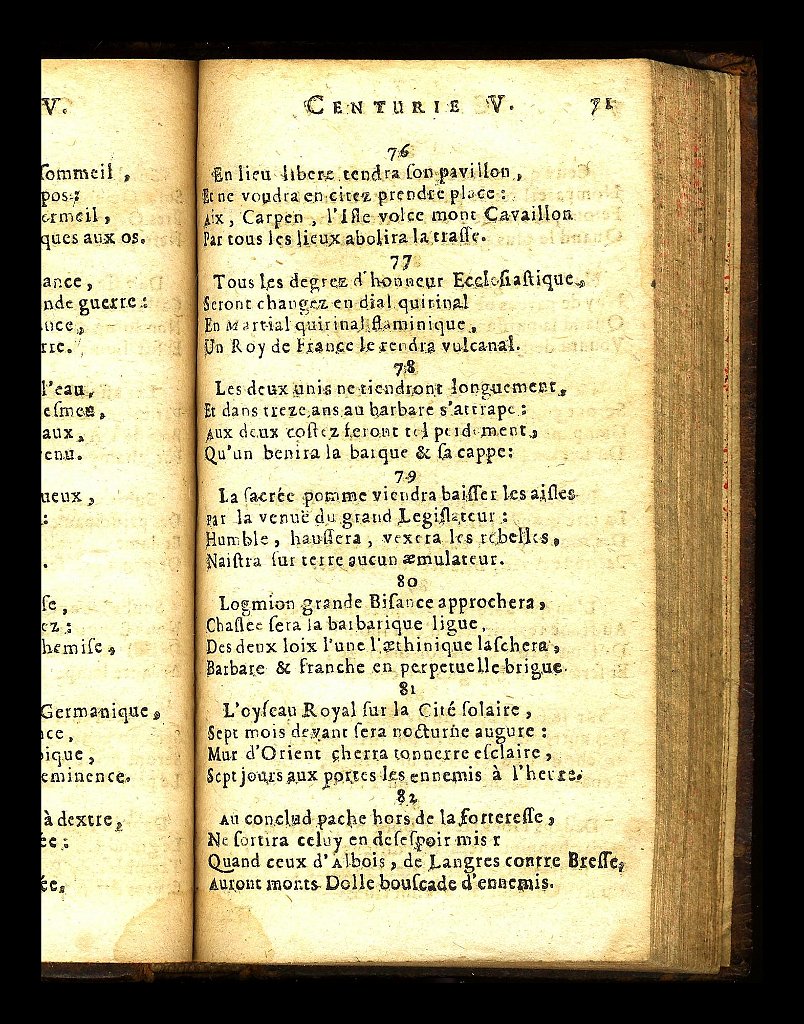 V.
ſommeil ,
pos :
ermeil ,
ques aux os.
ance ,
nde guerre :
nce ,
rre.
l'eau ,
eſmes ,
aux ,
enu.
ueux ,
:
.
ſe ,
ez :
hemiſe ,
Germanique ,
nce ,
pique ,
eminence.
à dextre ,
ée :
ée ,
CENTURIE V. 71
76
En lieu libere tendra ſon pavillon ,
Et ne voudra en citez prendre place :
Aix , Carpen , l'Iſle volce mont Cavaillon
Par tous les lieux abolira la traſſe.
77
Tous les degrez d'honneur Eccleſiaſtique ,
Seront changez en dial quirinal
En Martial quirinal flaminique ,
Un Roy de France le rendra vulcanal.
78
Les deux unis ne tiendront longuement ,
Et dans treze ans au barbare s'attrape :
Aux deux coſtez feront tel perdement ,
Qu'un benira la barque & ſa cappe :
79
La ſacrée pomme viendra baiſſer les aiſles
Par la venuë du grand Legiſlateur :
Humble , hauſſera , vexera les rebelles ,
Naiſtra ſur terre aucun æmulateur.
80
Logmion grande Biſance approchera ,
Chaſſee ſera la barbarique ligue ,
Des deux loix l'une l'æthinique laſchera ,
Barbare & franche en perpetuelle brigue.
81
L'oyſeau Royal ſur la Cité ſolaire ,
Sept mois devant ſera nocturne augure :
Mur d'Orient cherra tonnerre eſclaire ,
Sept jours aux portes les ennemis à l'heure.
82
Au conclud pache hors de la fortereſſe ,
Ne ſortira celuy en deſeſpoir mis r
Quand ceux d'Albois , de Langres contre Breſſe ,
Auront monts Dolle bouſcade d'ennemis.